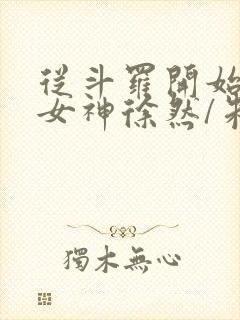 從斗羅開始
女神徐然/
獨木無心